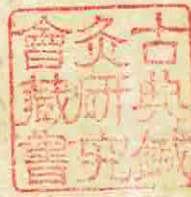 古典鍼
灸研究
會藏書